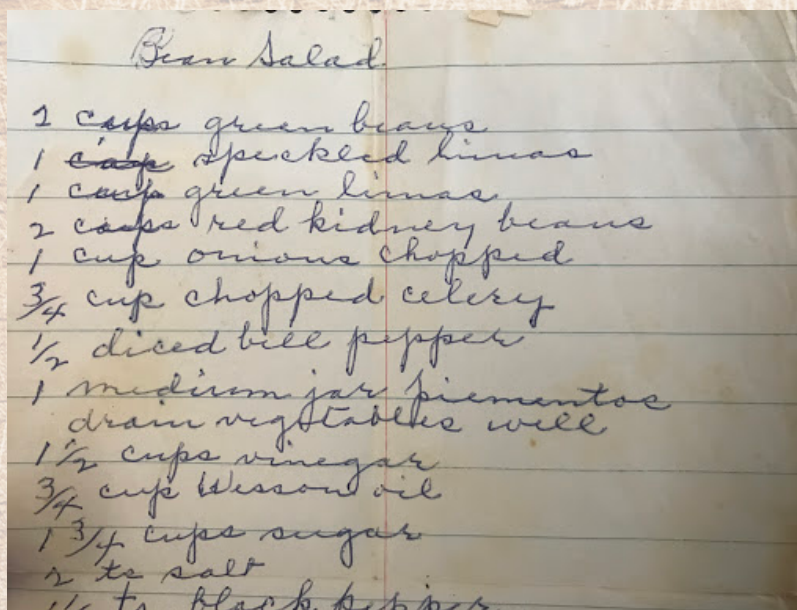 Bean Salad
2 cups green beans
1 cup speckled limas
1 cup green limas
2 cups red kidney beans
1 cup onions chopped
3/4 cup chopped celery
1/2 diced bell pepper
1 medium jar piementos
drain vegetables well
1 1/2 cups vinegar
3/4 cup Wesson oil
1 3/4 cups sugar
2 ts salt
ts black pepper